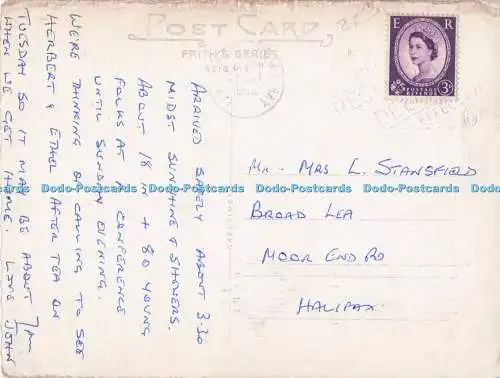 POST CARD
FRITH'S SERIES
E R
POSTAGE REVENUE
3D
ARRIVED SAFELY ABOUT 3.30
MIDST SUNSHINE & SHOWERS.
ABOUT 18 IN + 80 YOUNG
FOLKS AT A CONFERENCE
UNTIL SUNDAY EVENING.
WE'RE THINKING OF CALLING TO SEE
HERBERT & ETHEL AFTER TEA ON
TUESDAY SO IT MAY BE ABOUT 7pm
WHEN WE GET HOME. LOVE JOHN
Mr. MRS L. STANSFIELD
BROAD LEA
MOOR END RD
HALIFAX.
Dodo-Postcards Dodo-Postcards Dodo-Postcards Dodo-Postcards Dodo-Postcards Dodo-Postcards